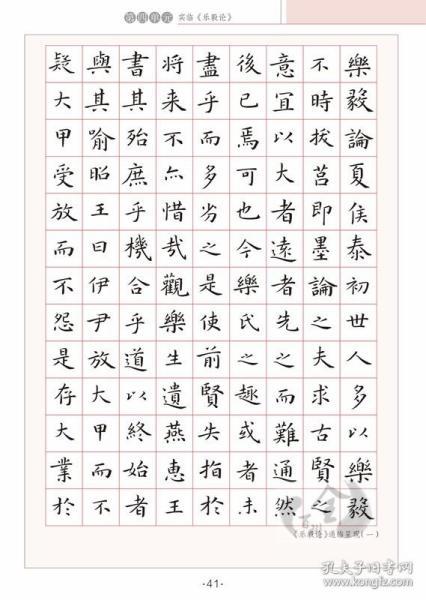 第四单元 实临《乐毅论》
樂毅論夏侯泰初世人多以樂毅
不時拔莒即墨論之夫求古賢之
意宜以大者遠者先之而難通然
後已焉可也今樂氏之趣或者未
盡乎而多劣之是使前賢失指於
将来不亦惜哉觀樂生遺燕惠王
書其殆庶乎機合乎道以終始者
與其喻昭王曰伊尹放大甲而不
疑大甲受放而不怨是存大業於
《乐毅论》通临呈现（一）
·41·
孔夫子旧书网
www.kongfz.com